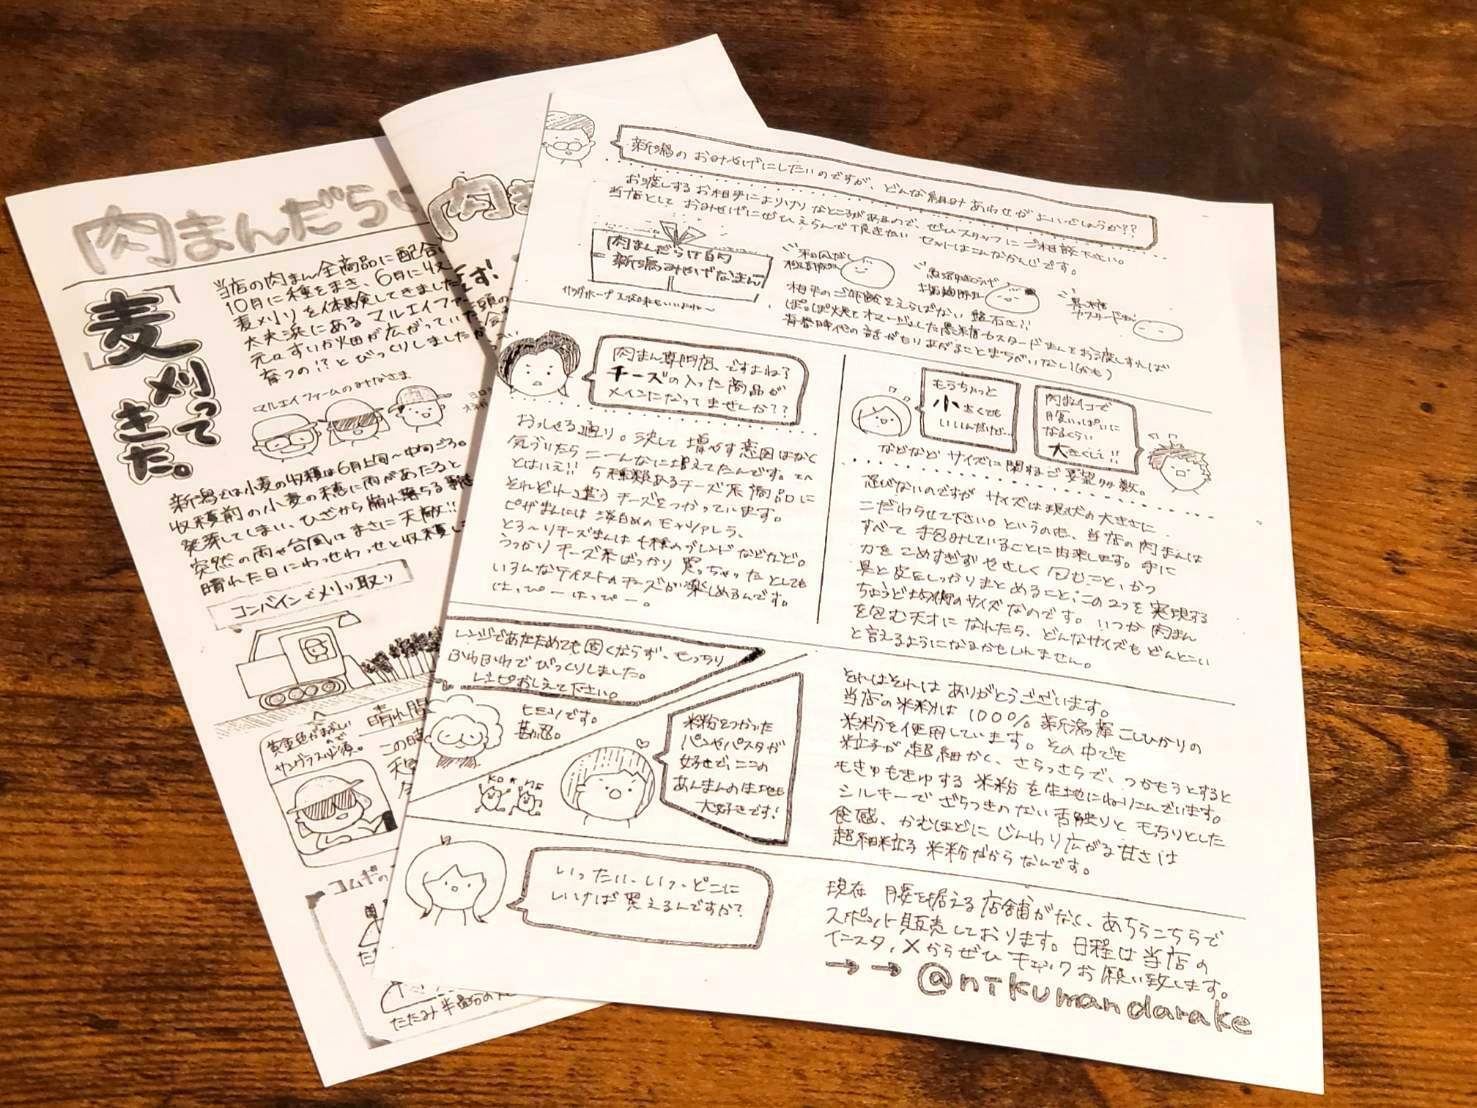 肉まんだらけ
肉ま
「麦
刈って
きた。」
当店の肉まん全商品に配合
10月に種をまき、6月に収
麦刈りを体験してきました
大夫浜にあるマルエイファー
元々すいか畑が広がっていた
育つの!?とびっくりしました
す!
マルエイファームのみなさま
新潟では小麦の収穫は6月上旬〜中旬ごろ。
収穫前の小麦の穂に雨があたると
発芽してしまい、ひざから崩れ落ちる
突然の雨や台風はまさに天敵!!
晴れた日にわっせわっせと収穫し
コンバインで刈り取り
黄金色がまぶしいので
サングラス必須。
晴れ間
この時
コムギの
たたみ半畳分の
新潟のおみやげにしたいのですが、どんな組みあわせがよいでしょうか??
お渡しするお相手によりけりなところがあるので、ぜひスタッフにご相談下さい。
当店としておみやげにぜひえらんで頂きたいセットはこんなかんじです。
肉まんだらけ自肉
新潟みやげなまん
相手のご年齢をえらばない盤石さ!!
ぽっぽ焼きをオマージュした黒糖カスタードまんをお渡しすれば
青春時代の話がもりあがることまちがいない(かも)
肉まん専門店ですよね?
チーズの入った商品が
メインになってませんか??
おっしゃる通り。決して増やす意図はなく
気づいたらこーんなに増えてたんです。
とはいえ!!5種類あるチーズ系商品に
それぞれ違うチーズをつかっています。
ピザまんには淡白めのモッツァレラ、
とろ〜りチーズまんは4種のブレンドなどなど。
うっかりチーズ系ばっかり買っちゃったとしても
いろんなテイストのチーズが楽しめるんです。
はっぴーはっぴー。
もうちょっと
小さくても
いいんだけど…
肉まんイコで
腹いっぱいに
なるくらい
大きくして!!
などなどサイズに関するご要望多数。
選びないのですがサイズは現状の大きさに
こだわらせて下さい。というのも、当店の肉まんは
すべて手包みしていることに由来します。手に
力をこめすぎずやさしく包むこと、かつ
具と皮をしっかりまとめること、この2つを実現する
ちょうど均衡のサイズなのです。いつか肉まん
を包む天才になれたら、どんなサイズもどんとこい
と言えるようになるかもしれません。
レンジであたためても固くならず、もっちり
ふわふわでびっくりしました。
レシピおしえて下さい。
ヒミツです。
勘忍。
米粉をつかった
パンやパスタが
好きで、ここの
あんまんの生地も
大好きです!
それはそれはありがとうございます。
当店の米粉は100%新潟産こしひかりの
米粉を使用しています。その中でも
粒子が超細かく、さらっさらで、つかもうとすると
もきゅもきゅする米粉を生地にねりこんでいます。
シルキーでざらつきのない舌触りともちりとした
食感、かむほどにじんわり広がる甘さは
超細粒子米粉だからなんです。
いったい、いつ、どこに
いけば買えるんですか?
現在 腰を据える店舗がなく、あちらこちらで
スポット販売しております。日程は当店の
インスタ、Xからぜひチェックお願い致します。
→→@nikumandarake